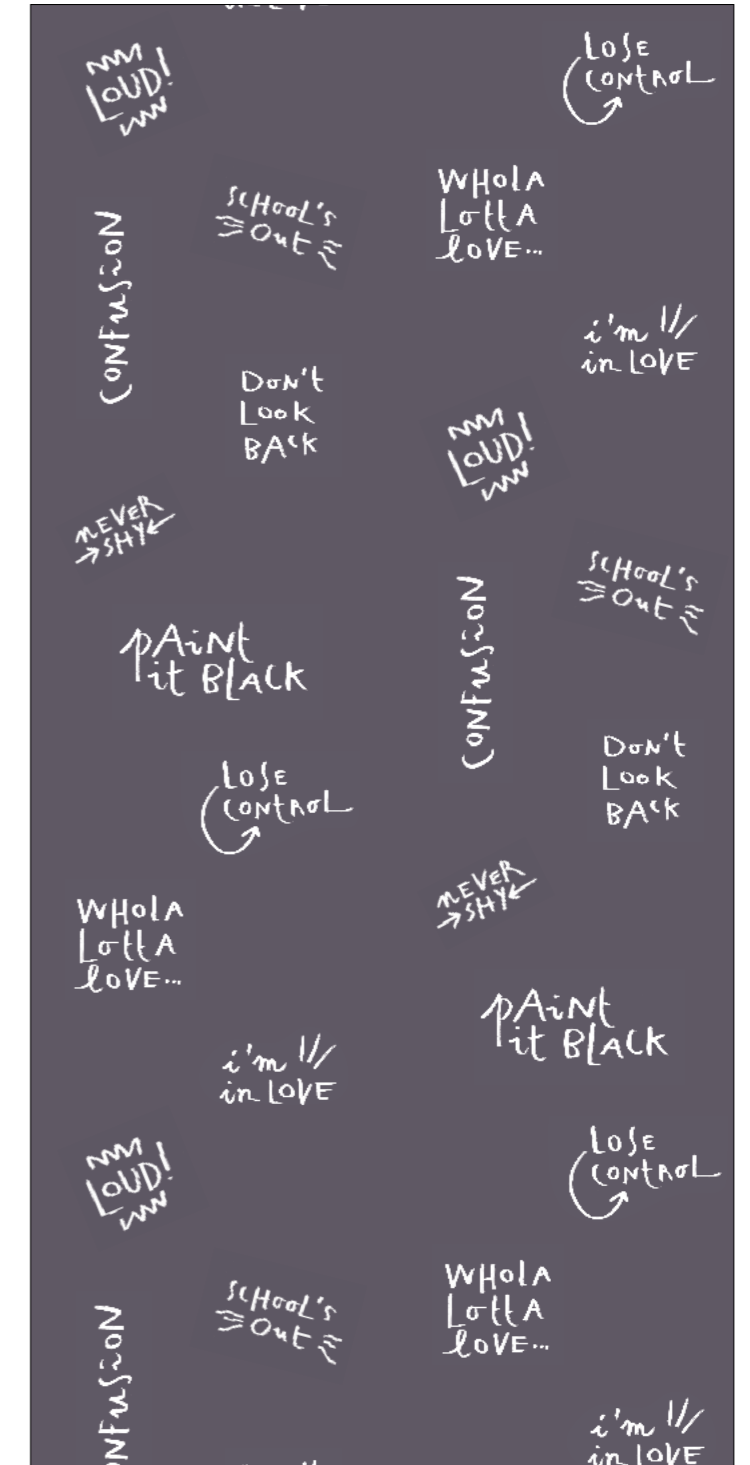 LOUD!
LOSE
CONTROL
SCHOOL'S
OUT
WHOLA
LOTTA
LOVE...
CONFUSION
i'm
in LOVE
DON'T
LOOK
BACK
LOUD!
NEVER
SHY
SCHOOL'S
OUT
CONFUSION
PAiNt
it BLACK
DON'T
LOOK
BACK
LOSE
CONTROL
NEVER
SHY
WHOLA
LOTTA
LOVE...
PAiNt
it BLACK
i'm
in LOVE
LOUD!
LOSE
CONTROL
SCHOOL'S
OUT
WHOLA
LOTTA
LOVE...
NFUSION
i'm
in LOVE